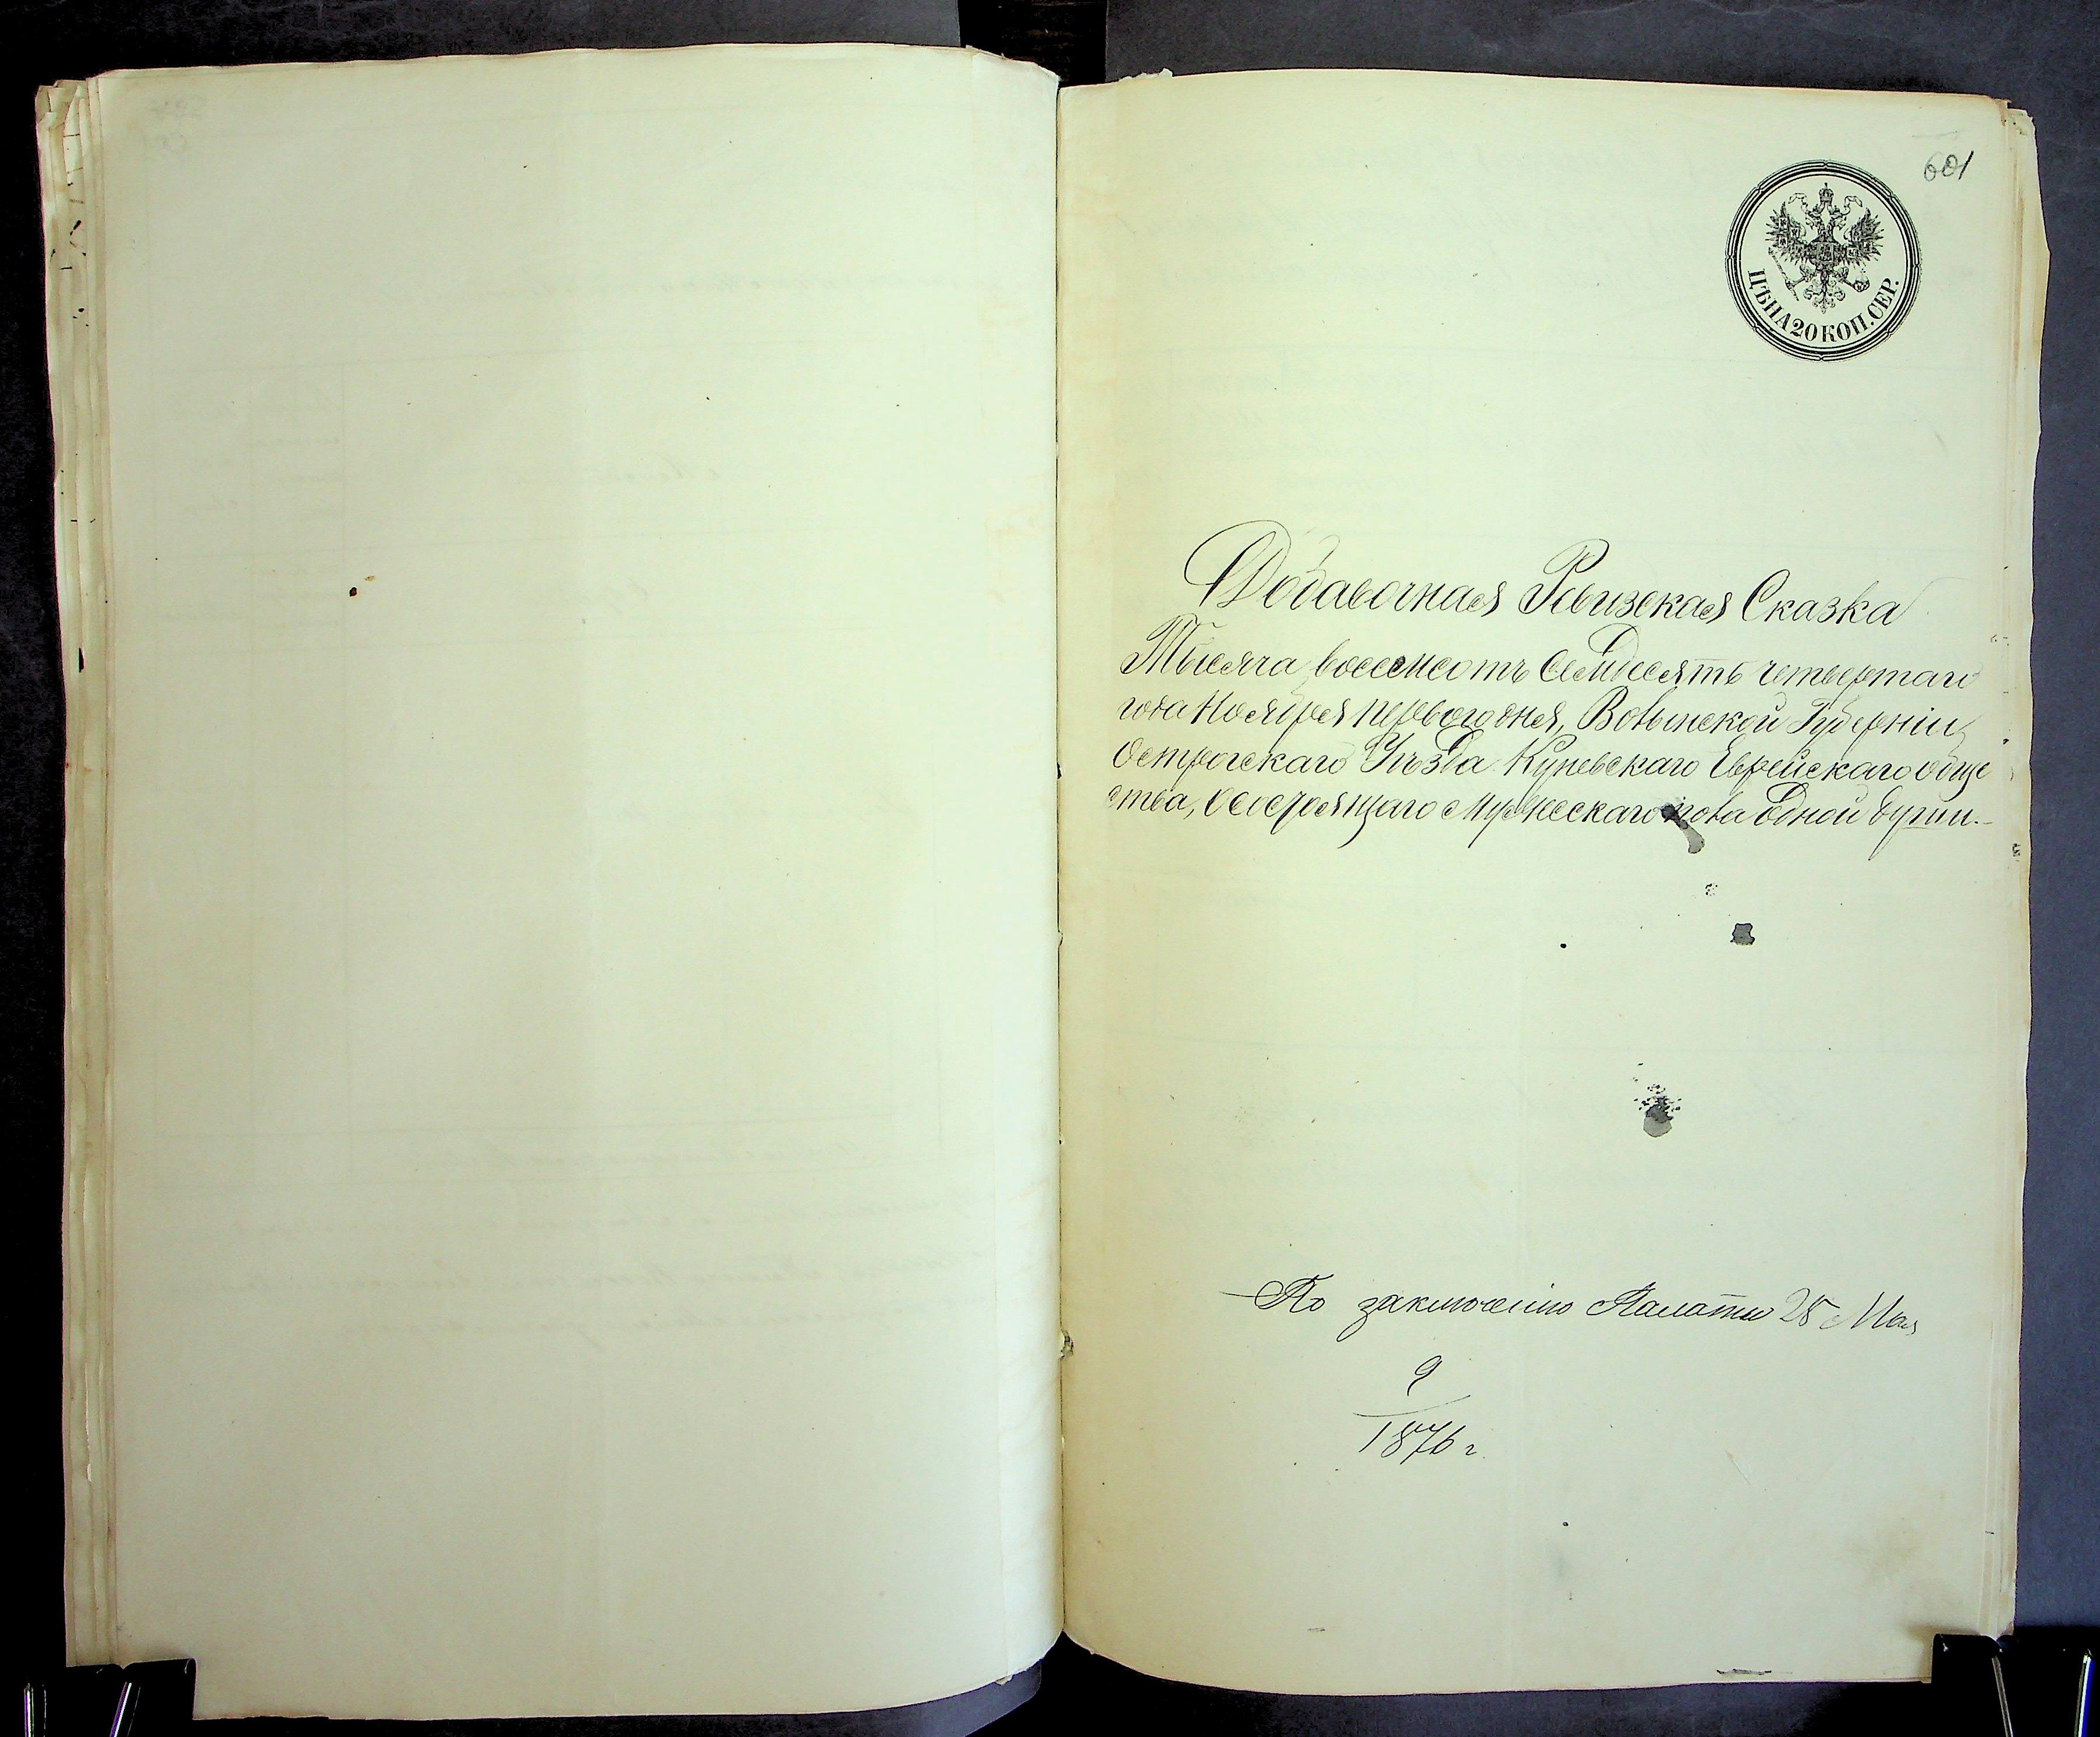 601
ЦѢНА 20 КОП. СЕР.
Добавочная Ревизская Сказка
Тысяча восемсотъ Семдесятъ четвертаго
года Ноября перваго дня, Волынской Губерніи
Острогскаго Уѣзда Куневскаго Еврейскаго обще
ства, о состоящаго Мужескаго пола Одной души.
По заключенію Палаты 28 Мая
9
1876 г.